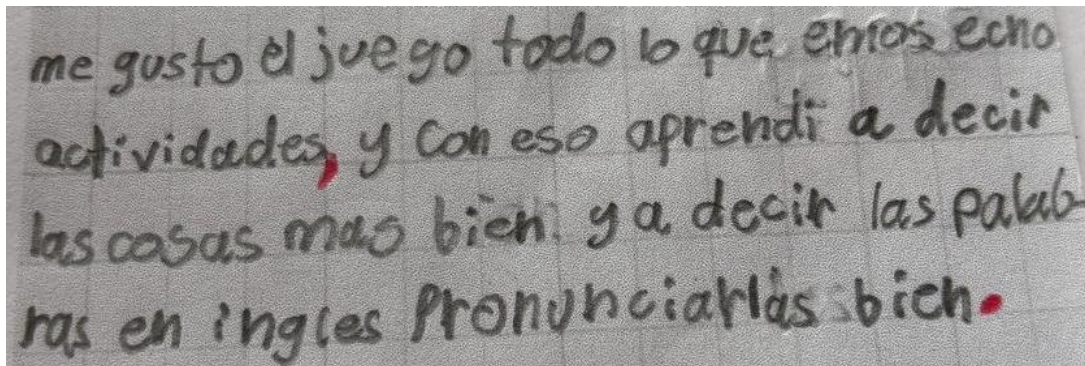 me gusto el juego todo lo que emos echo
actividades, y con eso aprendi a decir
las cosas mas bien y a decir las palab-
ras en ingles pronunciarlas bien.